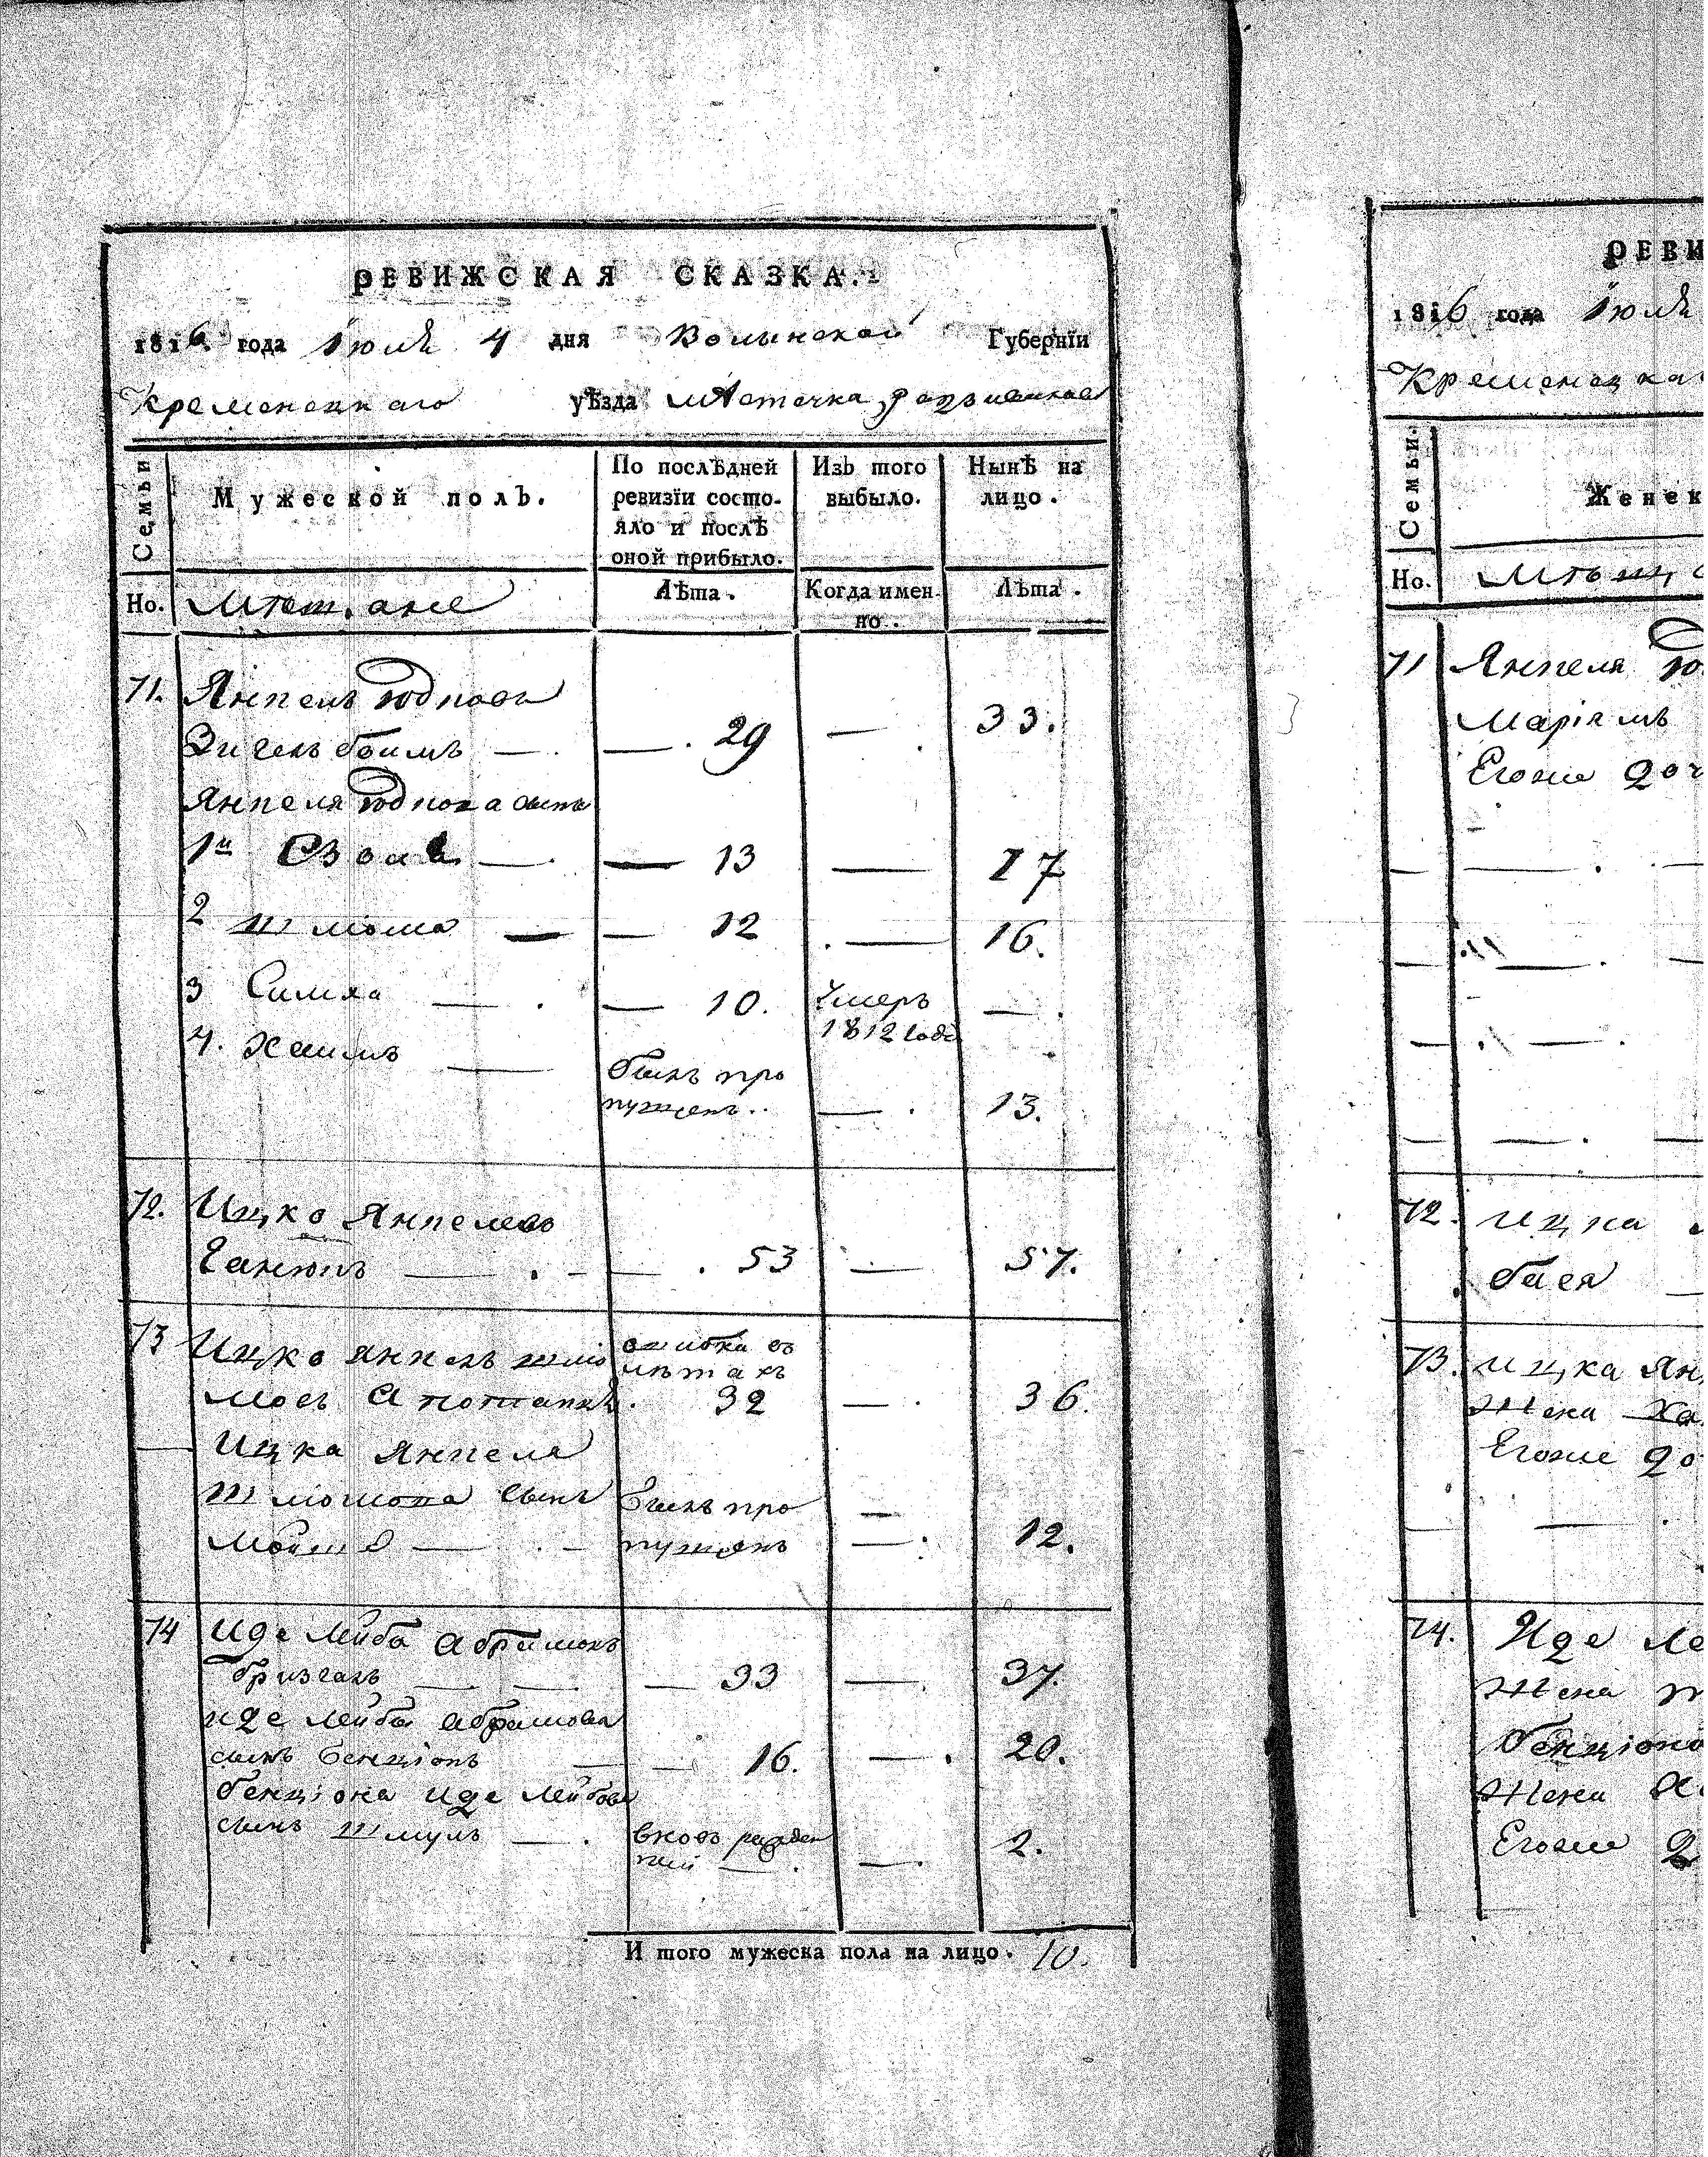 РЕВИЖСКАЯ СКАЗКА.
1816 года Іюля 4 дня Волынской Губернїи
Кременецкаго уѣзда мѣстечка
Семьи
Мужеской полъ.
По послѣдней ревизїи состо-
яло и послѣ
оной прибыло.
Изъ того
выбыло.
Нынѣ на
лицо.
Но. Мѣщане
Лѣта.
Когда имен-
но.
Лѣта.
71. Янкель
— 29 — 33.
Янкеля сынъ
1й — 13 — 17
2 Шліома — 12 — 16.
3 Симха — 10. Умеръ 1812 года —
4. Хаимъ — былъ про
пущенъ — 13.
72. Ицко Янкелевъ
— 53 — 57.
73 Ицко Янкель Шліо
ошибка въ
лѣтахъ
32 — 36.
Ицка Янкеля
Шліомова сынъ
былъ про
пущенъ — 12.
74 Иде Лейба Абрамовъ
— 33 — 37.
Иде Лейбы Абрамова
сынъ Бенціонъ — 16. — 20.
Бенціона Иде Лейбова
сынъ Шмуль — вновь рожден
ный — 2.
И того мужеска пола на лицо. 10.
РЕВИ
1816 года Іюля
Кременецка
Семьи.
Женск
Но. Мѣщ
71 Янкеля
Маріямъ
Егоже доч
72. Ицка
бася
73. Ицка Ян
Жена Ха
Егоже до
74. Иде Ле
Жена
Бенціона
Жена
Егоже